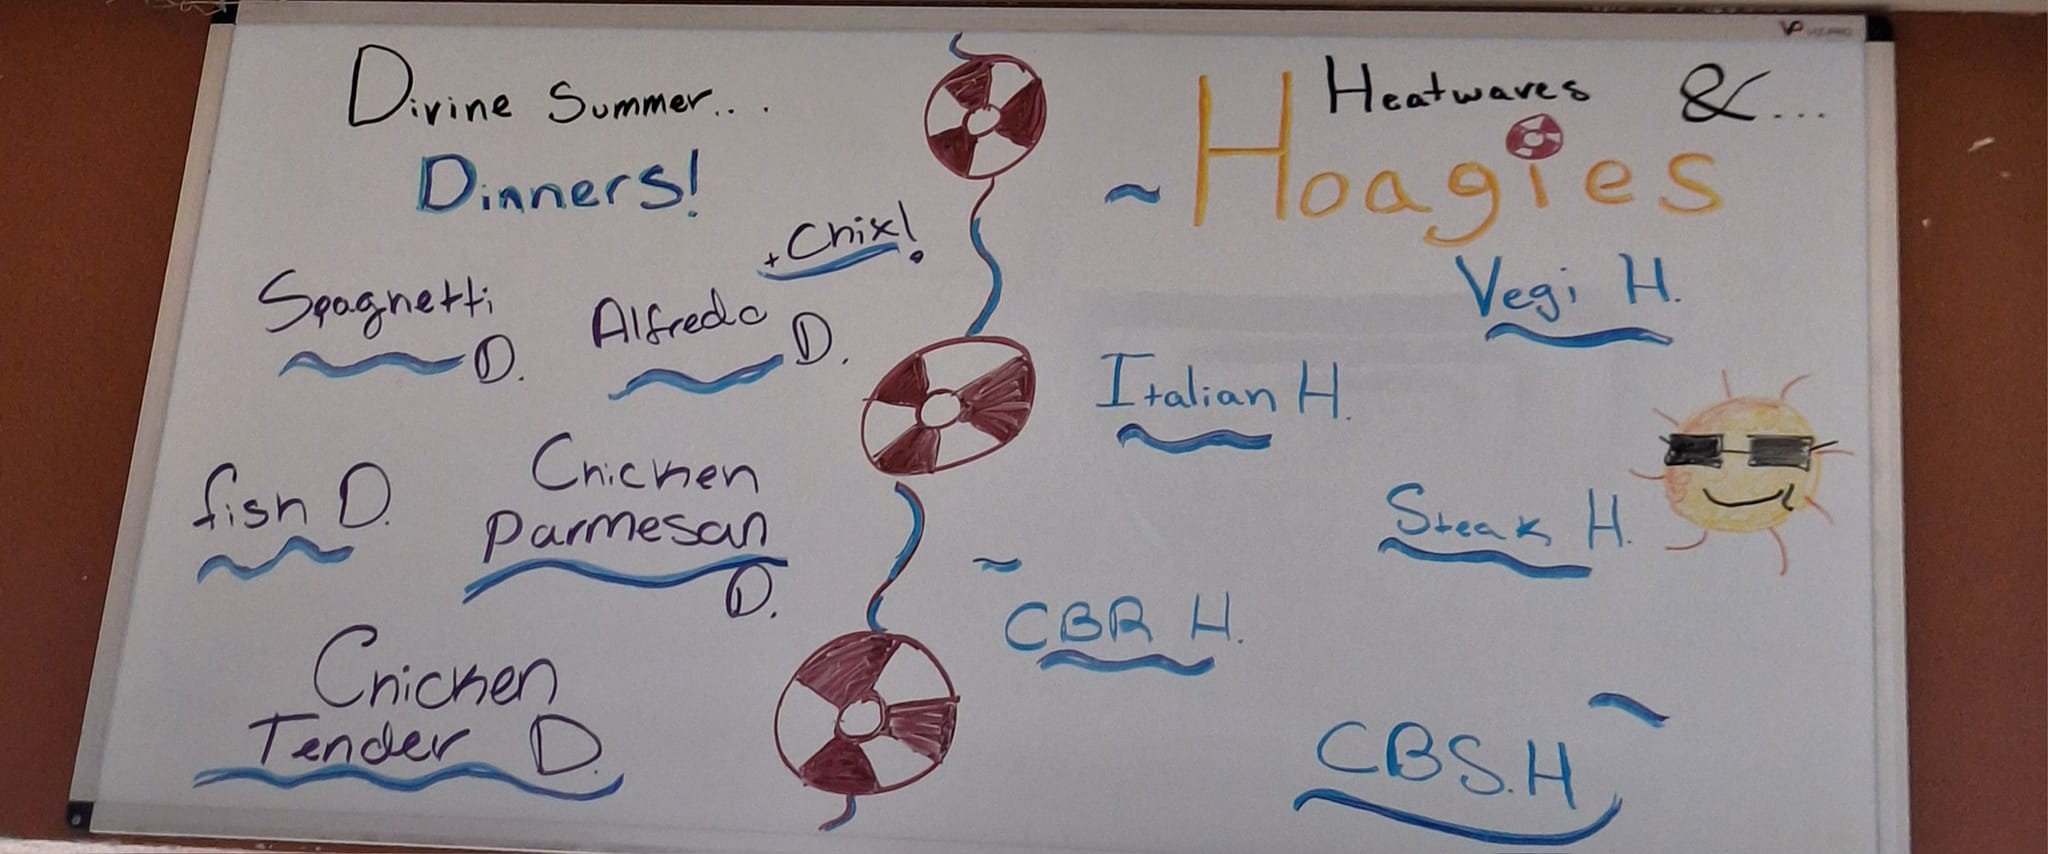 Divine Summer...
Dinners!
+ Chix!
Spaghetti
D.
Alfredo D.
fish D.
Chicken
Parmesan
D.
Chicken
Tender D.
Heatwaves &...
~ Hoagies
Vegi H.
Italian H.
Steak H.
~
CBR H.
~
CBS.H
VP VIZ-PRO